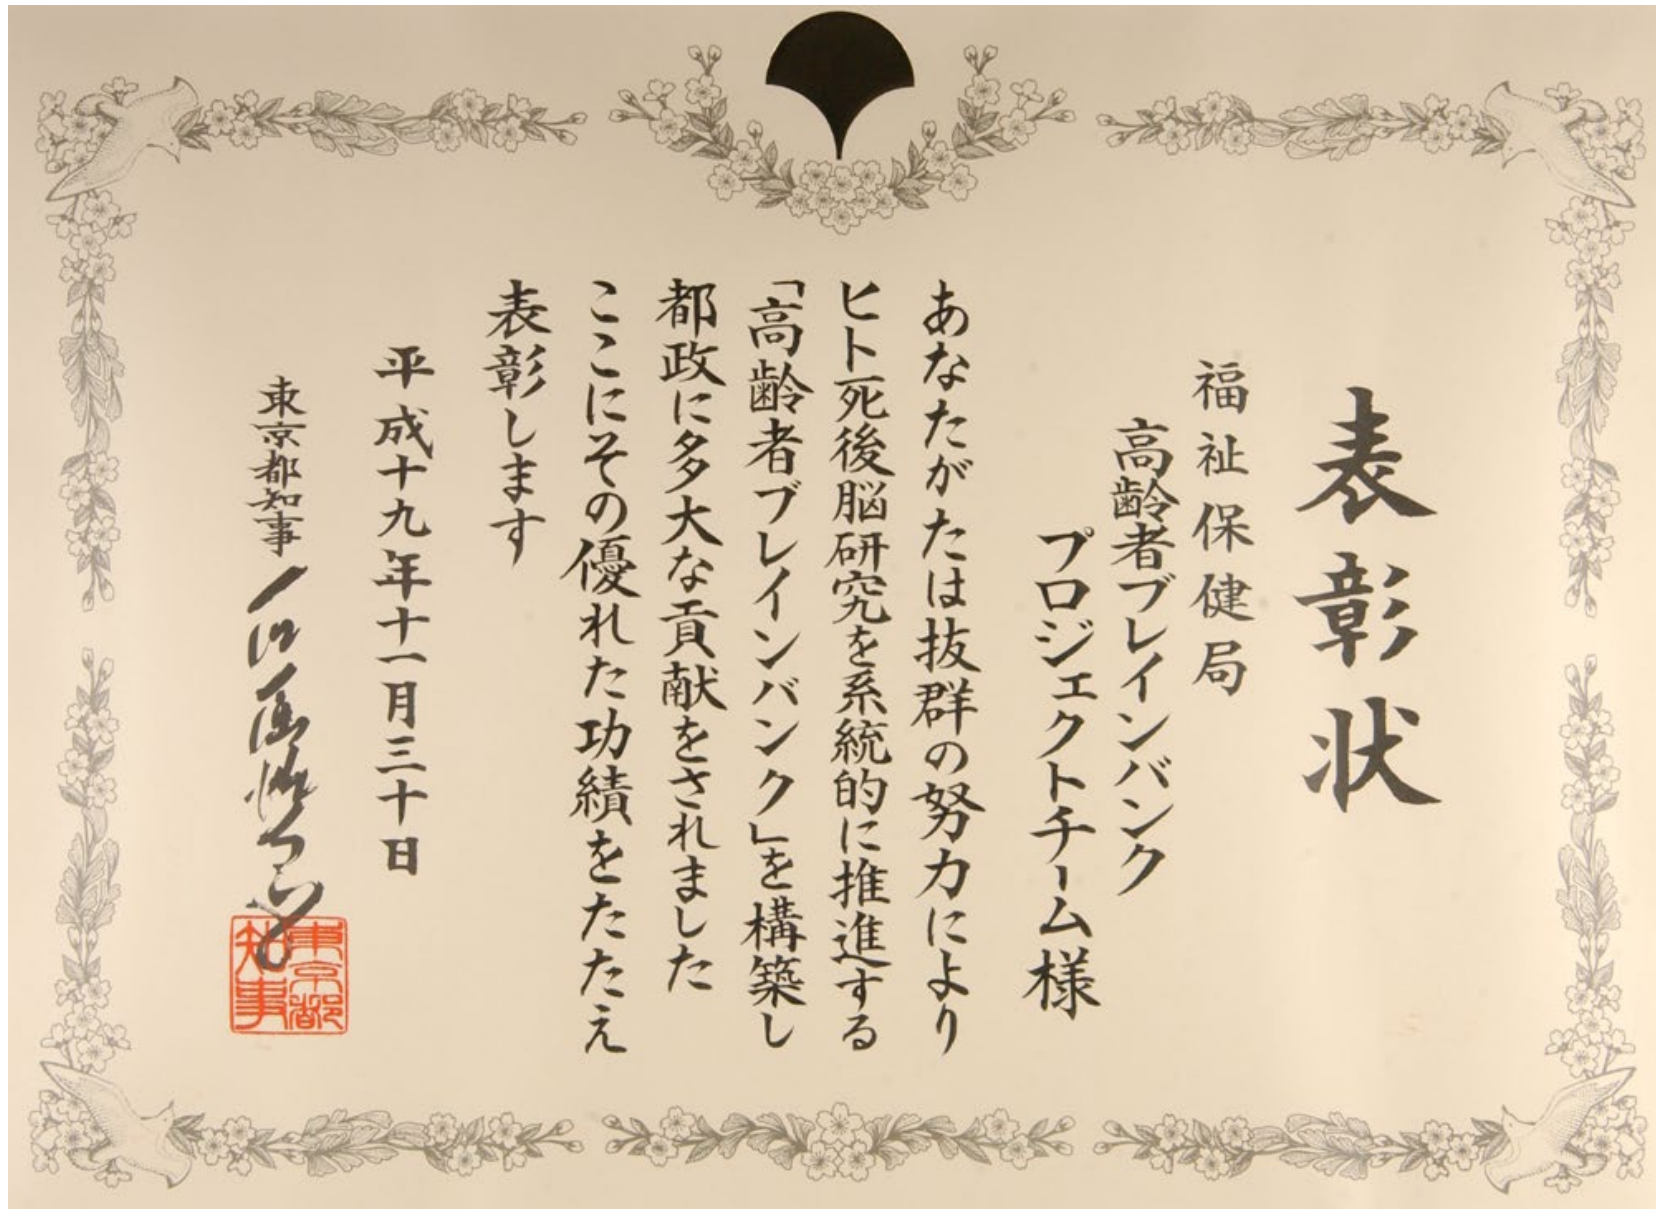 表彰状
福祉保健局
高齢者ブレインバンク
プロジェクトチーム様
あなたがたは抜群の努力により
ヒト死後脳研究を系統的に推進する
「高齢者ブレインバンク」を構築し
都政に多大な貢献をされました
ここにその優れた功績をたたえ
表彰します
平成十九年十一月三十日
東京都知事 石原慎太郎
東京都
知事